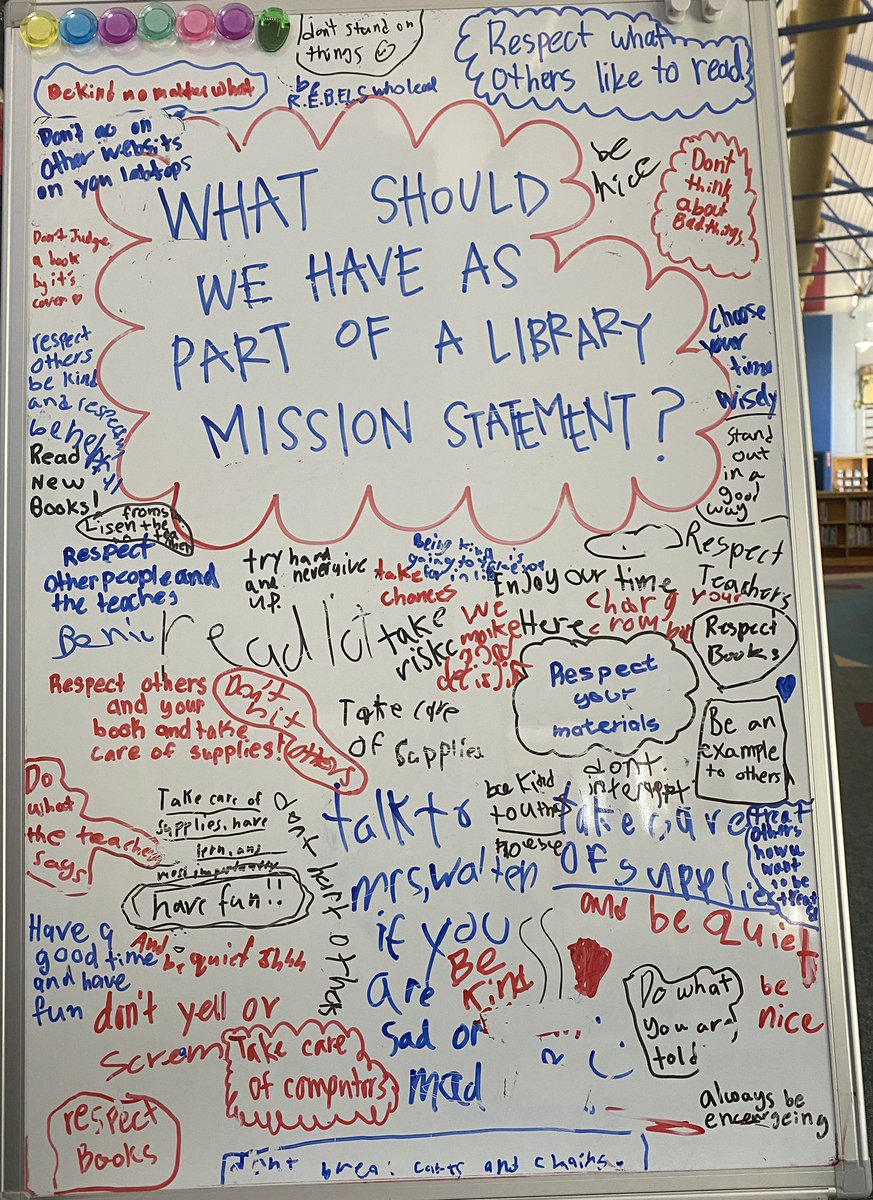 don't stand on
things
be
R.E.B.E.L.S who lead
Respect what
others like to read
Be kind no matter what
Don't go on
other websits
on you labtops
be
nice
Dont
think
about
Bad things
WHAT SHOULD
WE HAVE AS
PART OF A LIBRARY
MISSION STATEMENT?
Don't Judge
a book
by it's
cover
respect
others
be kind
and respess
Read
New
Books!
choose
your
time
wisely
Stand
out
in a
good
way
Lisen
Respect
other people and
the teaches
try hard
and never give
up.
take
chances
Being kind is
going to
far in life
Enjoy our time
Here
Respect
Teachers
Be nic
read
take
riskc
we
make
good
Respect
Books
Respect
your
materials
Respect others
and your
book and take
care of supplies!
Don't
hit
others
Take care
of supplies
Be an
example
to others
Do
what
the teacher
says
Take care of
supplies, have
lern, and
most importantly
have fun!!
dont hurt other
talk to
mrs, walten
if you
are
sad or
mad
bee kind
to other
dont
interept
take care
of supplies
and be quiet
treat
others
how u
want
to be
treated
Have a
good time
and have
fun
And
be quiet shhh
don't yell or
scream
Be
kind
Do what
you are
told
be
nice
Take care
of computors
always be
encergeing
respect
Books
Dont brea: carts and chairs.